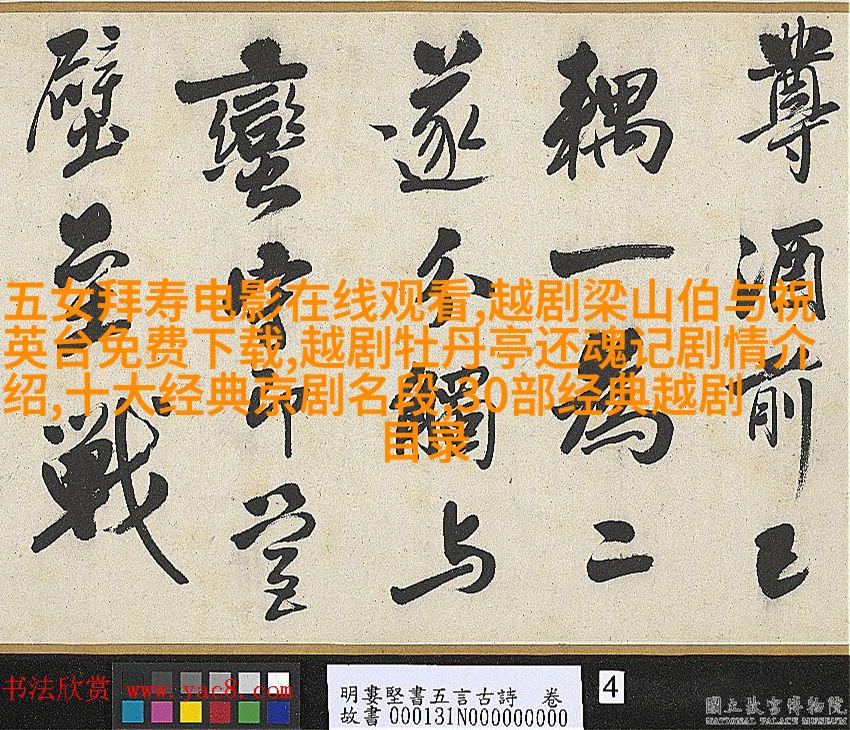 尊酒前已
耦一為二
遂分觸与
蠻即營
壁壘戰
五女拜寿电影在线观看,越剧梁山伯与祝
英台免费下载,越剧牡丹亭还魂记剧情介
绍,十大经典京剧名段,30部经典越剧
目录
书法欣赏 www.yac8.com
明婁堅書五言古詩 卷
故書000131N000000000
4
國立故宮博物院
NATIONAL PALACE MUSEUM